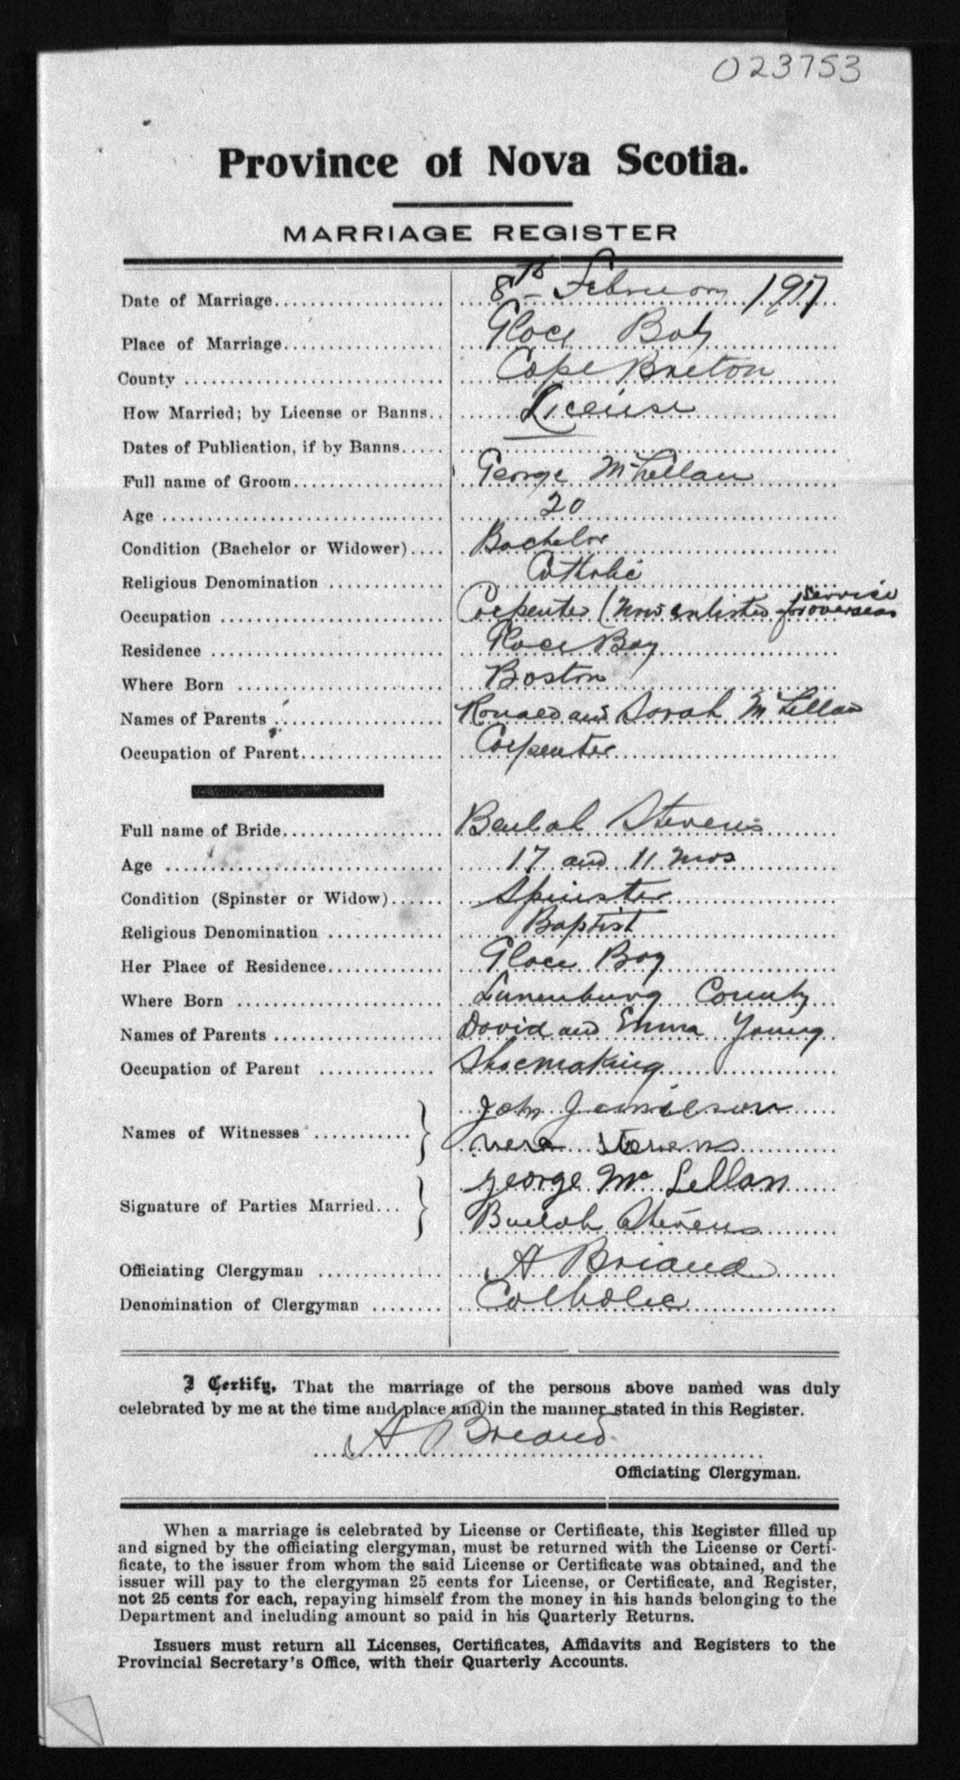 023753
Province of Nova Scotia.
MARRIAGE REGISTER
Date of Marriage.................... 8th February 1917
Place of Marriage................... Glace Bay
County .............................. Cape Breton
How Married; by License or Banns.. License
Dates of Publication, if by Banns.....
Full name of Groom.................. George McLellan
Age ................................. 20
Condition (Bachelor or Widower).... Bachelor
Religious Denomination ............. Catholic
Occupation .......................... Carpenter (Now enlisted for overseas service
Residence ........................... Glace Bay
Where Born ........................ Boston
Names of Parents ................... Ronald and Sarah McLellan
Occupation of Parent................. Carpenter
Full name of Bride................... Beulah Stevens
Age ................................. 17 and 11 mos
Condition (Spinster or Widow)...... Spinster
Religious Denomination ............. Baptist
Her Place of Residence.............. Glace Bay
Where Born ........................ Lunenburg County
Names of Parents .................... David and Emma Young
Occupation of Parent ............. Shoemaking
Names of Witnesses ........... } John Jamieson
Vera Stevens
Signature of Parties Married... } George McLellan
Buelah Stevens
Officiating Clergyman ............. A Briand
Denomination of Clergyman ........ Catholic
I Certify, That the marriage of the persons above named was duly
celebrated by me at the time and place and in the manner stated in this Register.
A Briand
Officiating Clergyman.
When a marriage is celebrated by License or Certificate, this Register filled up
and signed by the officiating clergyman, must be returned with the License or Certi-
ficate, to the issuer from whom the said License or Certificate was obtained, and the
issuer will pay to the clergyman 25 cents for License, or Certificate, and Register,
not 25 cents for each, repaying himself from the money in his hands belonging to the
Department and including amount so paid in his Quarterly Returns.
Issuers must return all Licenses, Certificates, Affidavits and Registers to the
Provincial Secretary's Office, with their Quarterly Accounts.